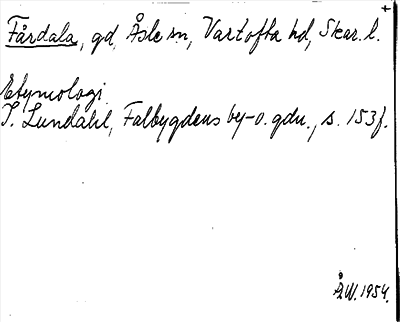 +
Fårdala, gd, Åsle sn, Vartofta hd, Skar. l.
Etymologi.
I. Lundahl, Falbygdens by- o. gdn., s. 153f.
Å.W. 1954.